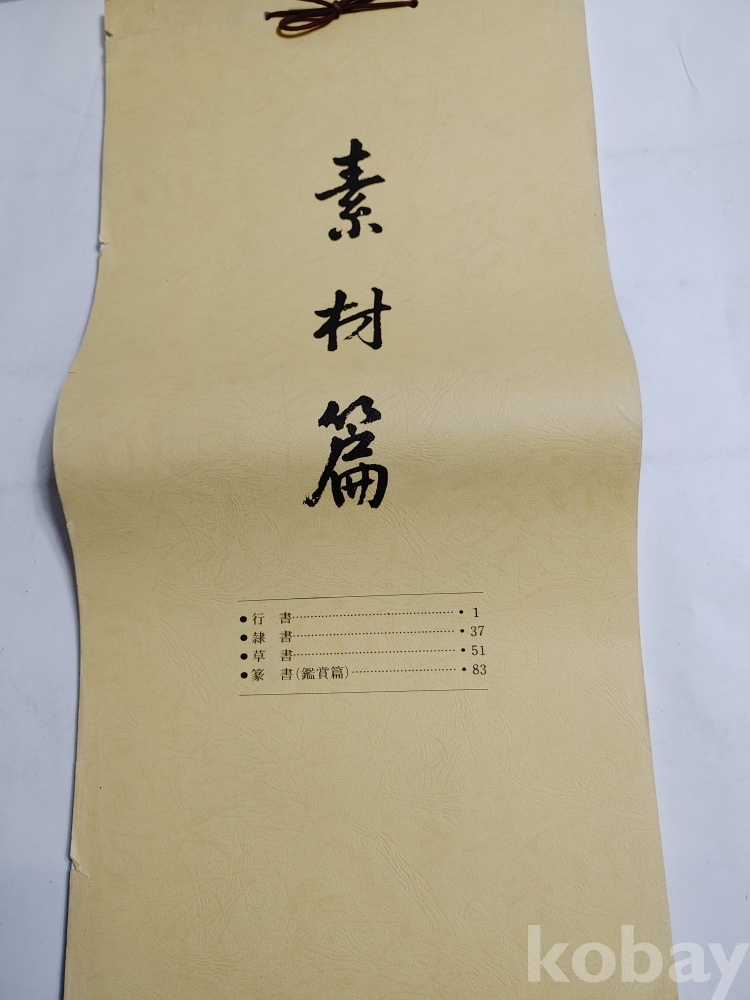 素材篇
●行　書……………………………・1
●隷　書……………………………・37
●草　書……………………………・51
●篆　書(鑑賞篇)…………………・83
kobay